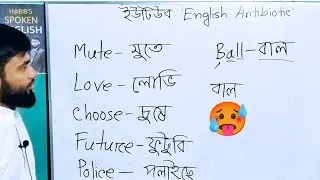 HABIB'S
SPOKEN
ENGLISH
ইউটিউব English Antibiotic
Mute - মুতে
Ball - বাল
Love - লোভি
বাল
Choose - চুষে
Future - ফুটুরি
Police - পলাইছে